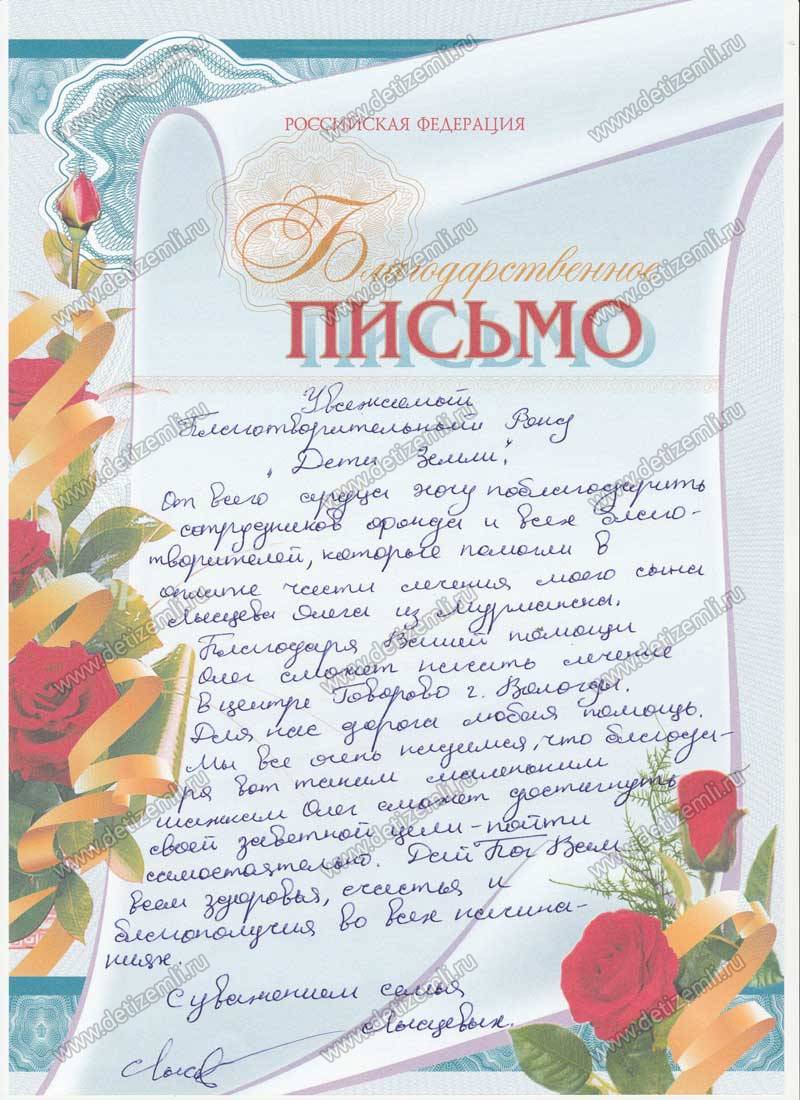 РОССИЙСКАЯ ФЕДЕРАЦИЯ
Благодарственное
ПИСЬМО
Уважаемый
Благотворительный Фонд
"Дети Земли".
От всего сердца хочу поблагодарить
сотрудников фонда и всех благо-
творителей, которые помогли в
оплате части лечения моего сына
Лысцева Олега из Мурманска.
Благодаря Вашей помощи
Олег сможет начать лечение
в центре Говорово г. Вологды.
Для нас дорога любая помощь.
Мы все очень надеемся, что благода-
ря вот таким маленьким
шажкам Олег сможет достигнуть
своей заветной цели - пойти
самостоятельно. Дай Бог Вам
всем здоровья, счастья и
благополучия во всех начина-
ниях.
С уважением семья
Лысцевых.
www.detizemli.ru